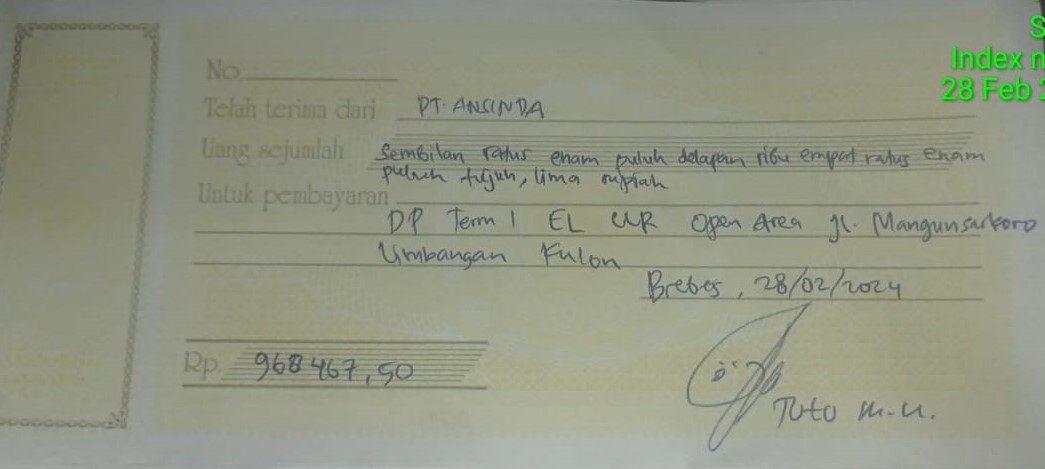 S
Index n
28 Feb 2
No.
Telah terima dari PT. ANSINDA
Uang sejumlah Sembilan ratus enam puluh delapan ribu empat ratus enam
puluh tujuh, lima rupiah
Untuk pembayaran
DP Term 1 EL UR Open Area Jl. Mangunsarkoro
Limbangan Kulon
Brebes, 28/02/2024
Rp. 968 467,50
Toto M.U.